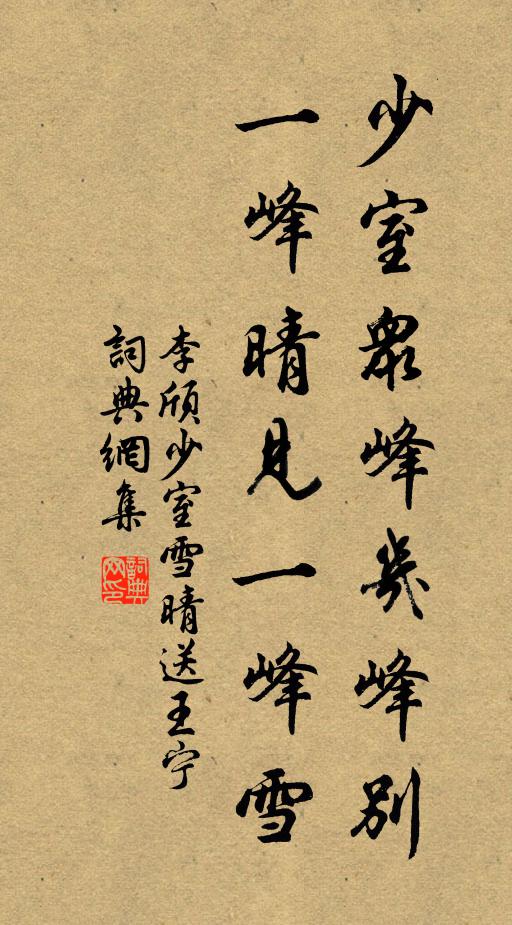 少室眾峰幾峰別
一峰晴見一峰雪
李頎少室雪晴送王宁
詞典網集
詞典
网印